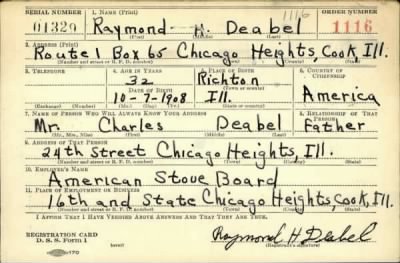 SERIAL NUMBER 1. NAME (Print) 1116 ORDER NUMBER
01329 Raymond H. Deabel 1116
(First) (Middle) (Last)
2. ADDRESS (Print)
Route 1 Box 65 Chicago Heights, Cook, Ill.
(Number and street or R. F. D. number) (Town) (County) (State)
3. TELEPHONE 4. AGE IN YEARS 5. PLACE OF BIRTH 6. COUNTRY OF CITIZENSHIP
32 Richton
DATE OF BIRTH (Town or county)
10-7-1908 Ill. America
(Exchange) (No.) (Mo.) (Day) (Yr.) (State or country)
7. NAME OF PERSON WHO WILL ALWAYS KNOW YOUR ADDRESS 8. RELATIONSHIP OF THAT PERSON
Mr. Charles Deabel Father
(Mr., Mrs., Miss) (First) (Middle) (Last)
9. ADDRESS OF THAT PERSON
24th Street Chicago Heights, Ill.
(Number and street or R. F. D. number) (Town) (County) (State)
10. EMPLOYER'S NAME
American Stove Board
11. PLACE OF EMPLOYMENT OR BUSINESS
16th and State Chicago Heights, Cook, Ill.
(Number and street or R. F. D. number) (Town) (County) (State)
I AFFIRM THAT I HAVE VERIFIED ABOVE ANSWERS AND THAT THEY ARE TRUE.
REGISTRATION CARD
D. S. S. Form 1 (over) Raymond H Deabel
(Registrant's signature)